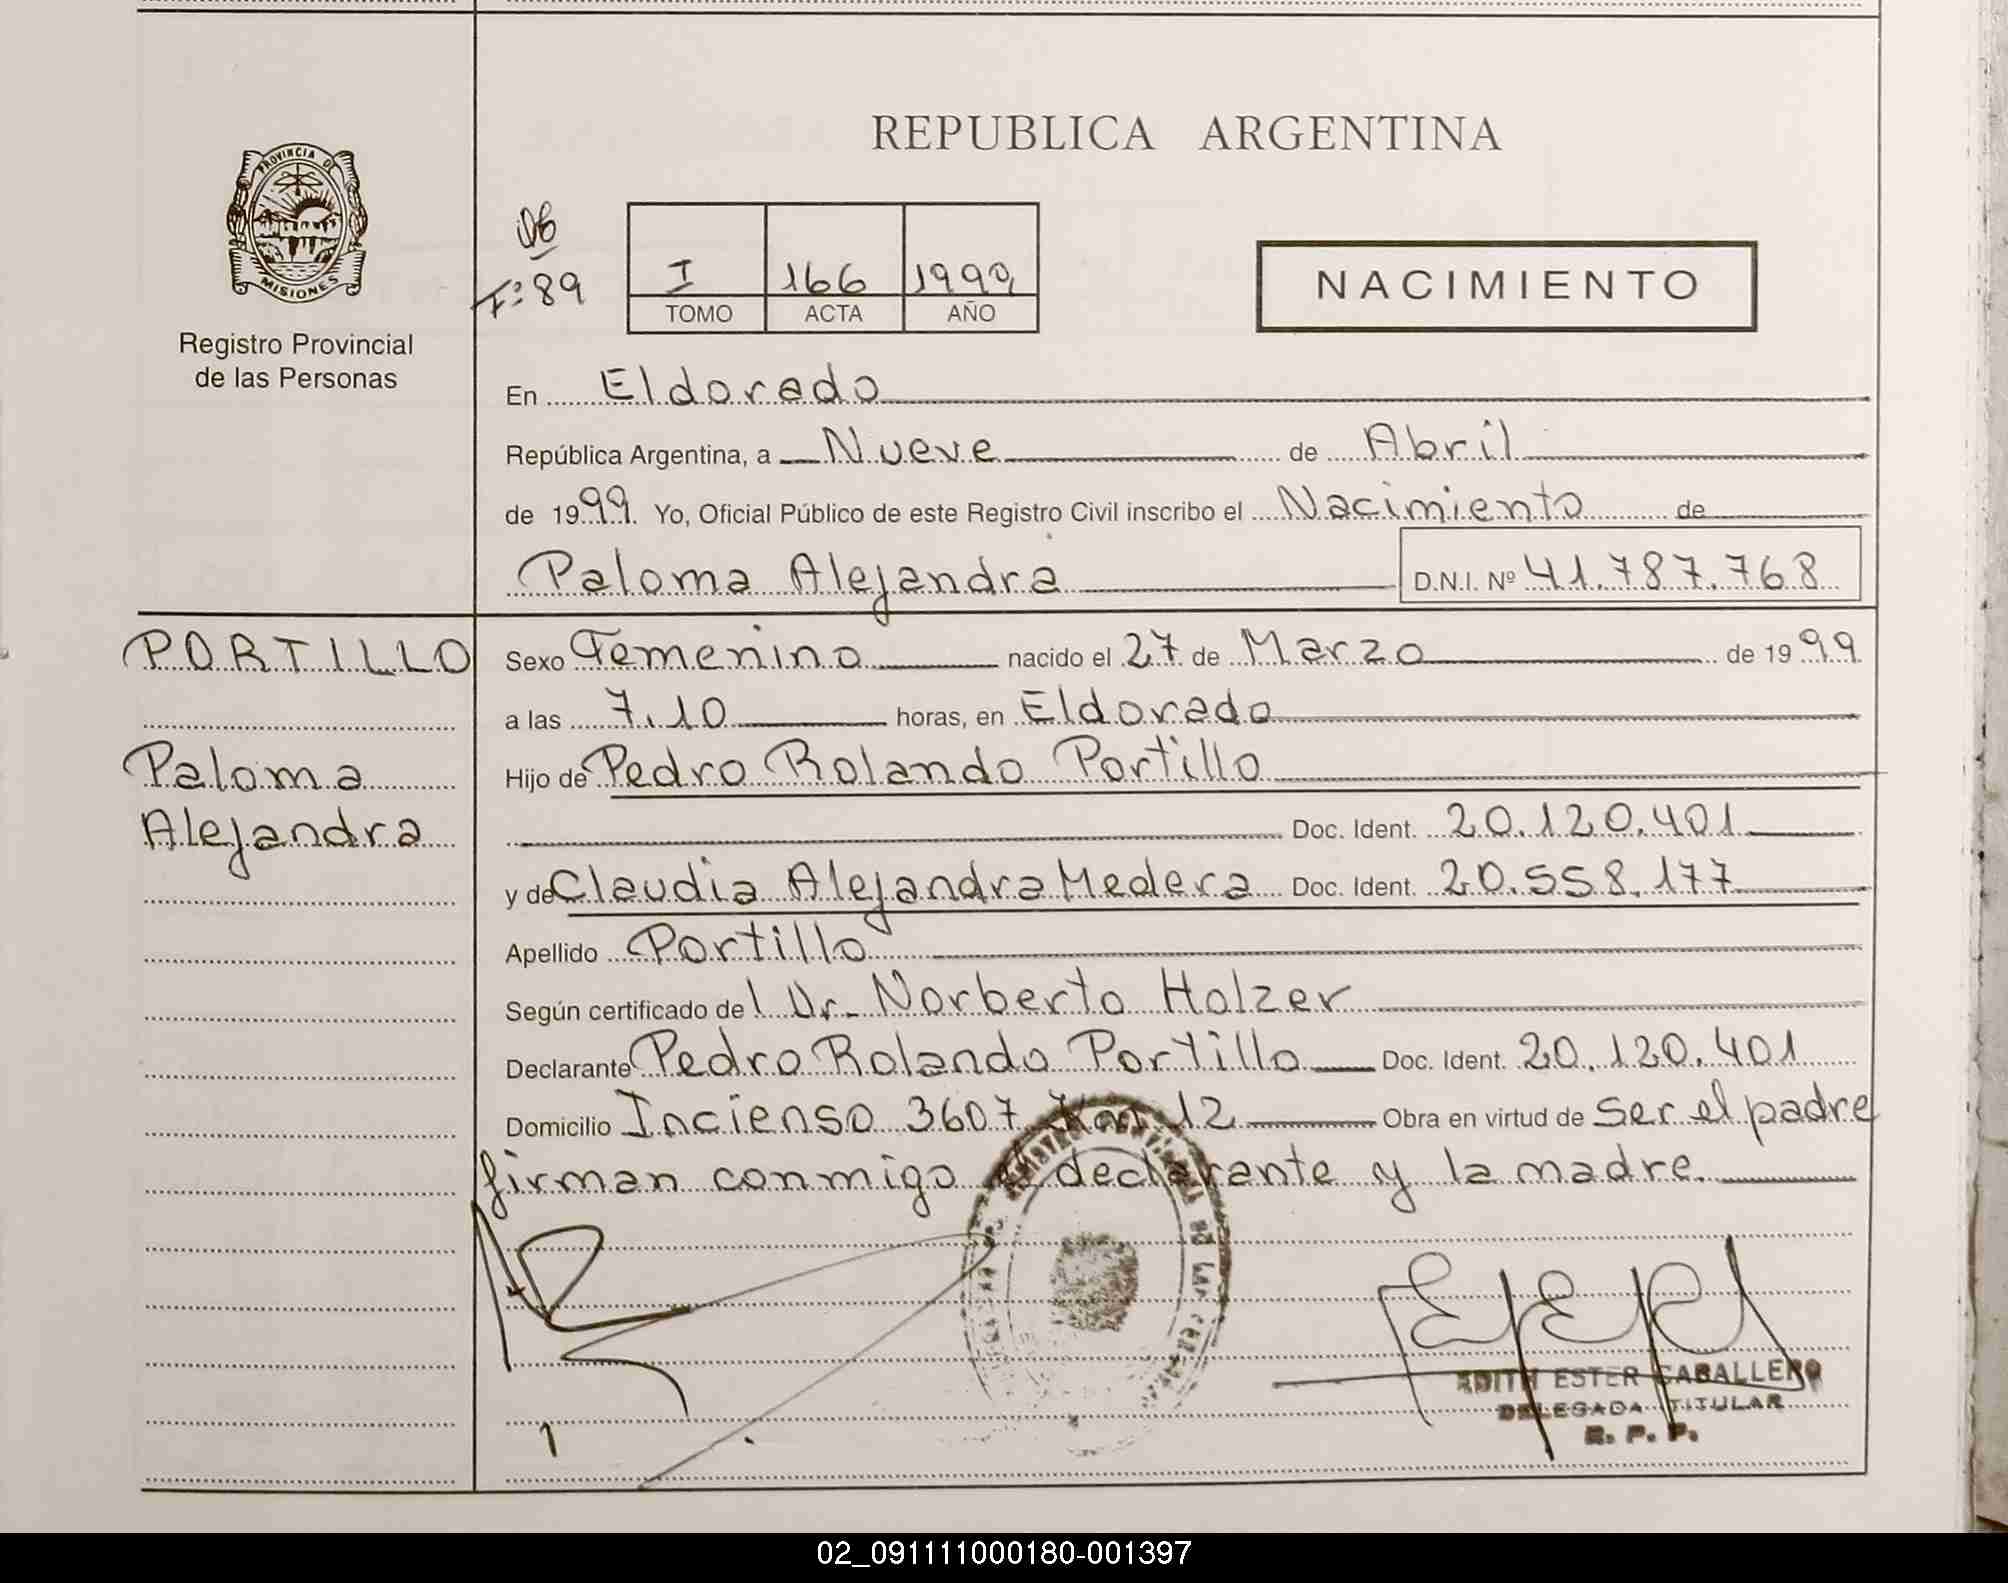 REPUBLICA ARGENTINA
PROVINCIA DE
MISIONES
Registro Provincial
de las Personas
F: 89
I 166 1999
TOMO ACTA AÑO
NACIMIENTO
En Eldorado
República Argentina, a Nueve de Abril
de 1999. Yo, Oficial Público de este Registro Civil inscribo el Nacimiento de
Paloma Alejandra D.N.I. Nº 41.787.768
PORTILLO
Paloma
Alejandra
Sexo Femenino nacido el 27 de Marzo de 1999
a las 7.10 horas, en Eldorado
Hijo de Pedro Rolando Portillo
Doc. Ident. 20.120.401
y de Claudia Alejandra Medera Doc. Ident. 20.558.177
Apellido Portillo
Según certificado del Dr. Norberto Holzer
Declarante Pedro Rolando Portillo Doc. Ident. 20.120.401
Domicilio Incienso 3607 Km 12 Obra en virtud de ser el padre
firman conmigo el declarante y la madre.
EDITH ESTER CABALLERO
DELEGADA TITULAR
R. P. P.
02_091111000180-001397